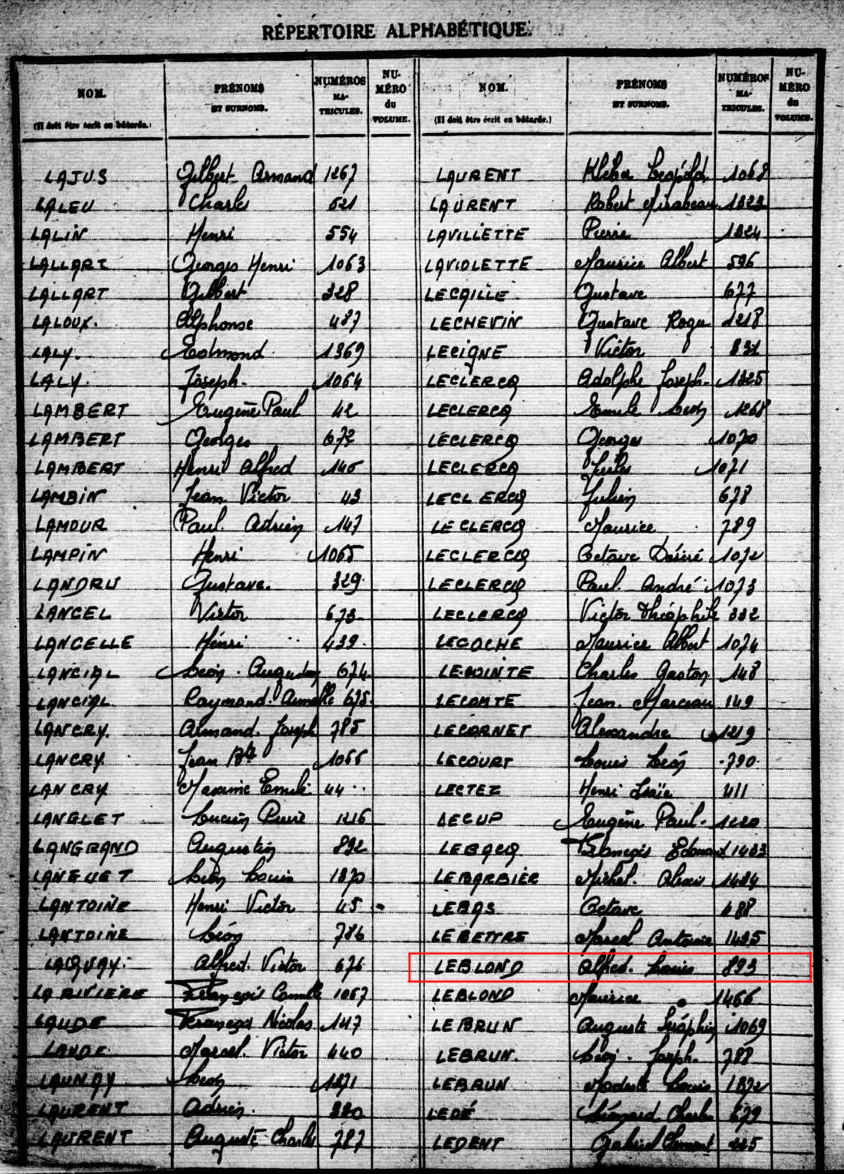 RÉPERTOIRE ALPHABÉTIQUE
NOM. PRÉNOMS NUMÉROS NU- NOM. PRÉNOMS NUMÉROS NU-
(Il doit être écrit en bâtarde.) ET SURNOMS. MA- MÉRO (Il doit être écrit en bâtarde.) ET SURNOMS. MA- MÉRO
TRICULES. du TRICULES. du
VOLUME. VOLUME.
LAJUS Gilbert Armand 1267 LAURENT Kléber Léopold 1068
LALEU Charles 621 LAURENT Robert Mirabeau 1323
LALIN Henri 554 LAVILLETTE Pierre 1324
LALLART Georges Henri 1063 LAVIOLETTE Maurice Albert 596
LALLART Gilbert 328 LECAILLE Gustave 677
LALOUX. Alphonse 487 LECHEVIN Gustave 1218
LALY. Edmond 1369 LECIGNE Victor
LALY. Joseph. 1064 LECLERCQ Adolphe Joseph. 1325
LAMBERT Eugène Paul 42 LECLERCQ Emile Léon 1268
LAMBERT Georges 672 LECLERCQ Georges 1070
LAMBERT Henri Alfred 146 LECLERCQ Jules 1071
LAMBIN Jean Victor 43 LECLERCQ Julien 678
LAMOUR Paul. Adrien 147 LECLERCQ Maurice 789
LAMPIN Henri 1065 LECLERCQ Octave Désiré 1072
LANDRU Gustave. 329 LECLERCQ Paul. André 1073
LANCEL Victor 673 LECLERCQ Victor Théophile 332
LANCELLE Henri 439 LECOCHE Maurice Albert 1074
LANCIAL Léon. Augustin 674 LECOINTE Charles Gaston 148
LANCIAL Raymond. 675 LECOMTE Jean. Marceau 149
LANCRY. Armand. Joseph 785 LECORNET Alexandre 1219
LANCRY. Jean Bte 1066 LECOURT Louis Léon 790
LANCRY Maxime Emile 44 LECTEZ Henri Isaïe 411
LANGLET Lucien Pierre 1216 LECUP Eugène Paul. 1220
LANGRAND Augustin 892 LEBACQ François Edouard 1433
LANGUET Léon Louis 1370 LEBARBIER Michel. 1434
LANTOINE Henri Victor 45 LEBAS Octave 488
LANTOINE Léon 786 LEBETTRE Marcel Antoine 1435
LAQUAY. Alfred. Victor 676 LEBLOND Alfred. Louis 893
LARIVIERE François Camille 1067 LEBLOND Maurice 1466
LAUDE François Nicolas 147 LEBRUN Auguste Séraphin 1069
LAUDE. Marcel. Victor 440 LEBRUN. Léon. Joseph. 788
LAUNAY Léon 1371 LEBRUN Modeste Louis 1372
LAURENT Adrien. 330 LEDÉ Léonard Charles 679
LAURENT Auguste Charles 787 LEDENT Gabriel Clément